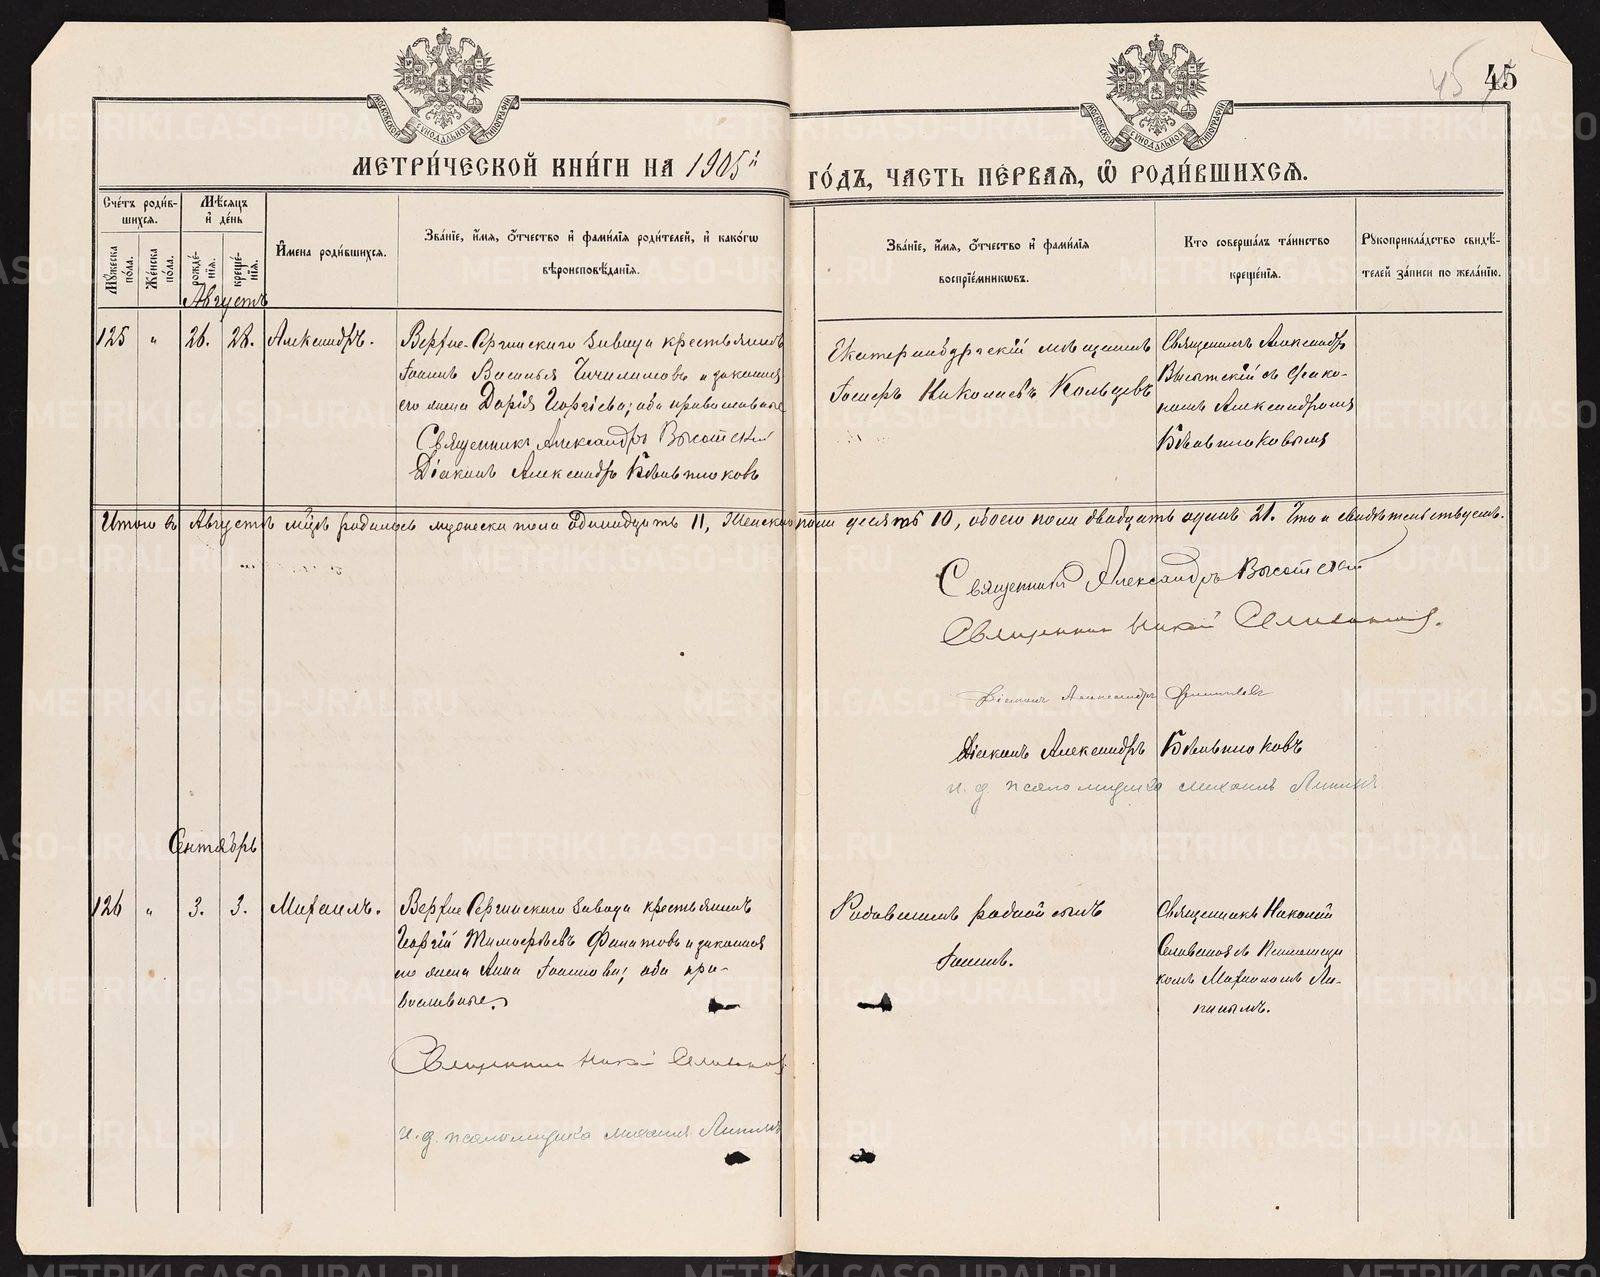 45 45
МОСКОВСКОЙ СѴНОДАЛЬНОЙ ТИПОГРАФІИ
МОСКОВСКОЙ СѴНОДАЛЬНОЙ ТИПОГРАФІИ
МЕТРИ́ЧЕСКОЙ КНИ́ГИ НА 1905й ГО́ДЪ, ЧАСТЬ ПЕ́РВАЯ, Ѿ РОДИ́ВШИХСЯ.
Сче́тъ роди́в-
шихся.
Мꙋ́жеска по́ла.
Же́нска по́ла.
Мѣ́сяцъ и҆ де́нь
рожде́-
нїѧ.
креще́-
нїѧ.
И҆мена роди́вшихся.
Зва́нїе, и҆́мѧ, ѻ҆́тчество и҆ фами́лїѧ роди́телей, и҆ како́гѡ
вѣроисповѣ́данїѧ.
Зва́нїе, и҆́мѧ, ѻ҆́тчество и҆ фами́лїѧ
воспрїе́мникѡвъ.
Кто соверша́лъ та́инство
креще́нїѧ.
Рꙋкоприкла́дство свидѣ́-
телей за́писи по жела́нїю.
Августъ
125 " 26. 28. Александръ.
Верхне-Сергинскаго завода крестьянинъ
Іоаннъ Васильевъ Чичилимовъ и законная
его жена Дарія Георгіева; оба православные
Священникъ Александръ Высотскій
Діаконъ Александръ
Екатеринбургскій мѣщанинъ
Николаевъ Кольцовъ
Священникъ Александръ
Высотскій съ діако-
номъ Александромъ
Итого въ Августѣ м͠цѣ родилось мужеска пола одиннадцать 11, женска пола десять 10, обоего пола двадцать одинъ 21. Что и свидѣтельствуемъ.
Священникъ Александръ Высотскій
Священникъ Николай Селивановъ.
Діаконъ Александръ
Діаконъ Александръ
и. д. псаломщика Михаилъ Липинъ
Сентябрь
126 " 3. 3. Михаилъ.
Верхне Сергинскаго завода крестьянинъ
Георгій Тимофѣевъ Филатовъ и законная
его жена Анна Іоаннова; оба пра-
вославные.
Священникъ Николай Селивановъ
и. д. псаломщика Михаилъ Липинъ
родной сынъ
Іоаннъ.
Священникъ Николай
Селивановъ съ Псаломщи
комъ Михаиломъ Ли-
пинымъ.
METRIKI.GASO-URAL.RU